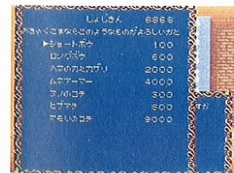 しょじきん 6868
おきゃくさまならこのようなものがよろしいかと
▶ショートボウ 100
ロングボウ 600
ハネのカミカザリ 2000
ムネアーマー 4000
ヌノのコテ 300
ヒザアテ 600
マモリのコテ 9000
すか